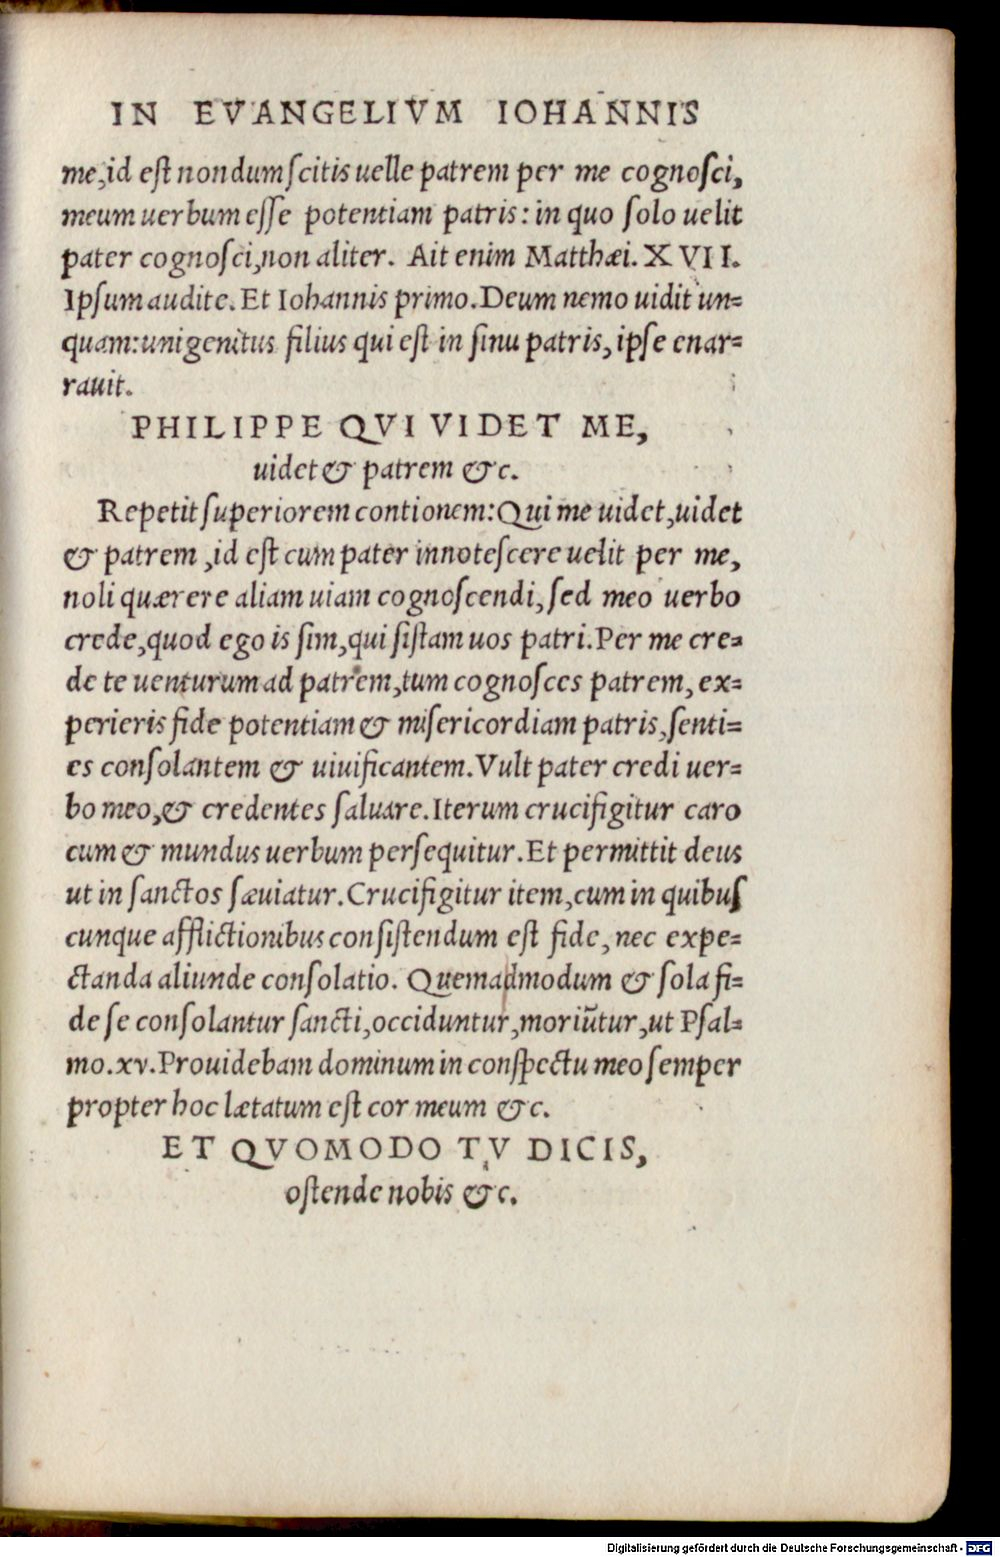 IN EVANGELIVM IOHANNIS
me, id est nondum scitis uelle patrem per me cognosci,
meum uerbum esse potentiam patris: in quo solo uelit
pater cognosci, non aliter. Ait enim Matthæi. XVII.
Ipsum audite. Et Iohannis primo. Deum nemo uidit un=
quam: unigenitus filius qui est in sinu patris, ipse enar=
rauit.
PHILIPPE QVI VIDET ME,
uidet & patrem &c.
Repetit superiorem contionem: Qui me uidet, uidet
& patrem, id est cum pater innotescere uelit per me,
noli quærere aliam uiam cognoscendi, sed meo uerbo
crede, quod ego is sim, qui sistam uos patri. Per me cre=
de te uenturum ad patrem, tum cognosces patrem, ex=
perieris fide potentiam & misericordiam patris, senti=
es consolantem & uiuificantem. Vult pater credi uer=
bo meo, & credentes saluare. Iterum crucifigitur caro
cum & mundus uerbum persequitur. Et permittit deus
ut in sanctos sæuiatur. Crucifigitur item, cum in quibus
cunque afflictionibus consistendum est fide, nec expe=
ctanda aliunde consolatio. Quemadmodum & sola fi=
de se consolantur sancti, occiduntur, moriūtur, ut Psal=
mo. xv. Prouidebam dominum in conspectu meo semper
propter hoc lætatum est cor meum &c.
ET QVOMODO TV DICIS,
ostende nobis &c.
Digitalisierung gefördert durch die Deutsche Forschungsgemeinschaft - DFG